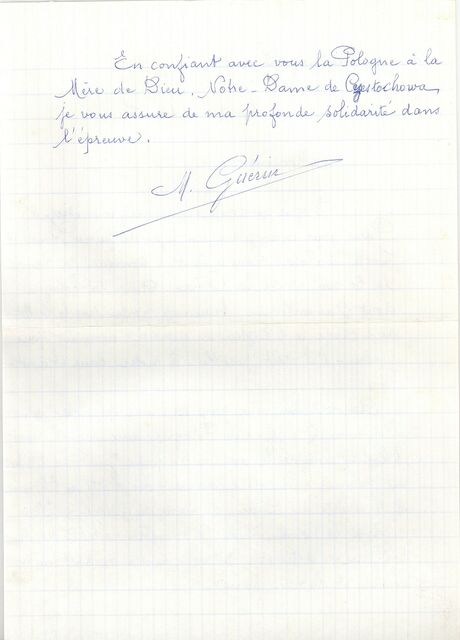 En confiant avec vous la Pologne à la
Mère de Dieu, Notre-Dame de Częstochowa,
je vous assure de ma profonde solidarité dans
l'épreuve.
M. Guérin